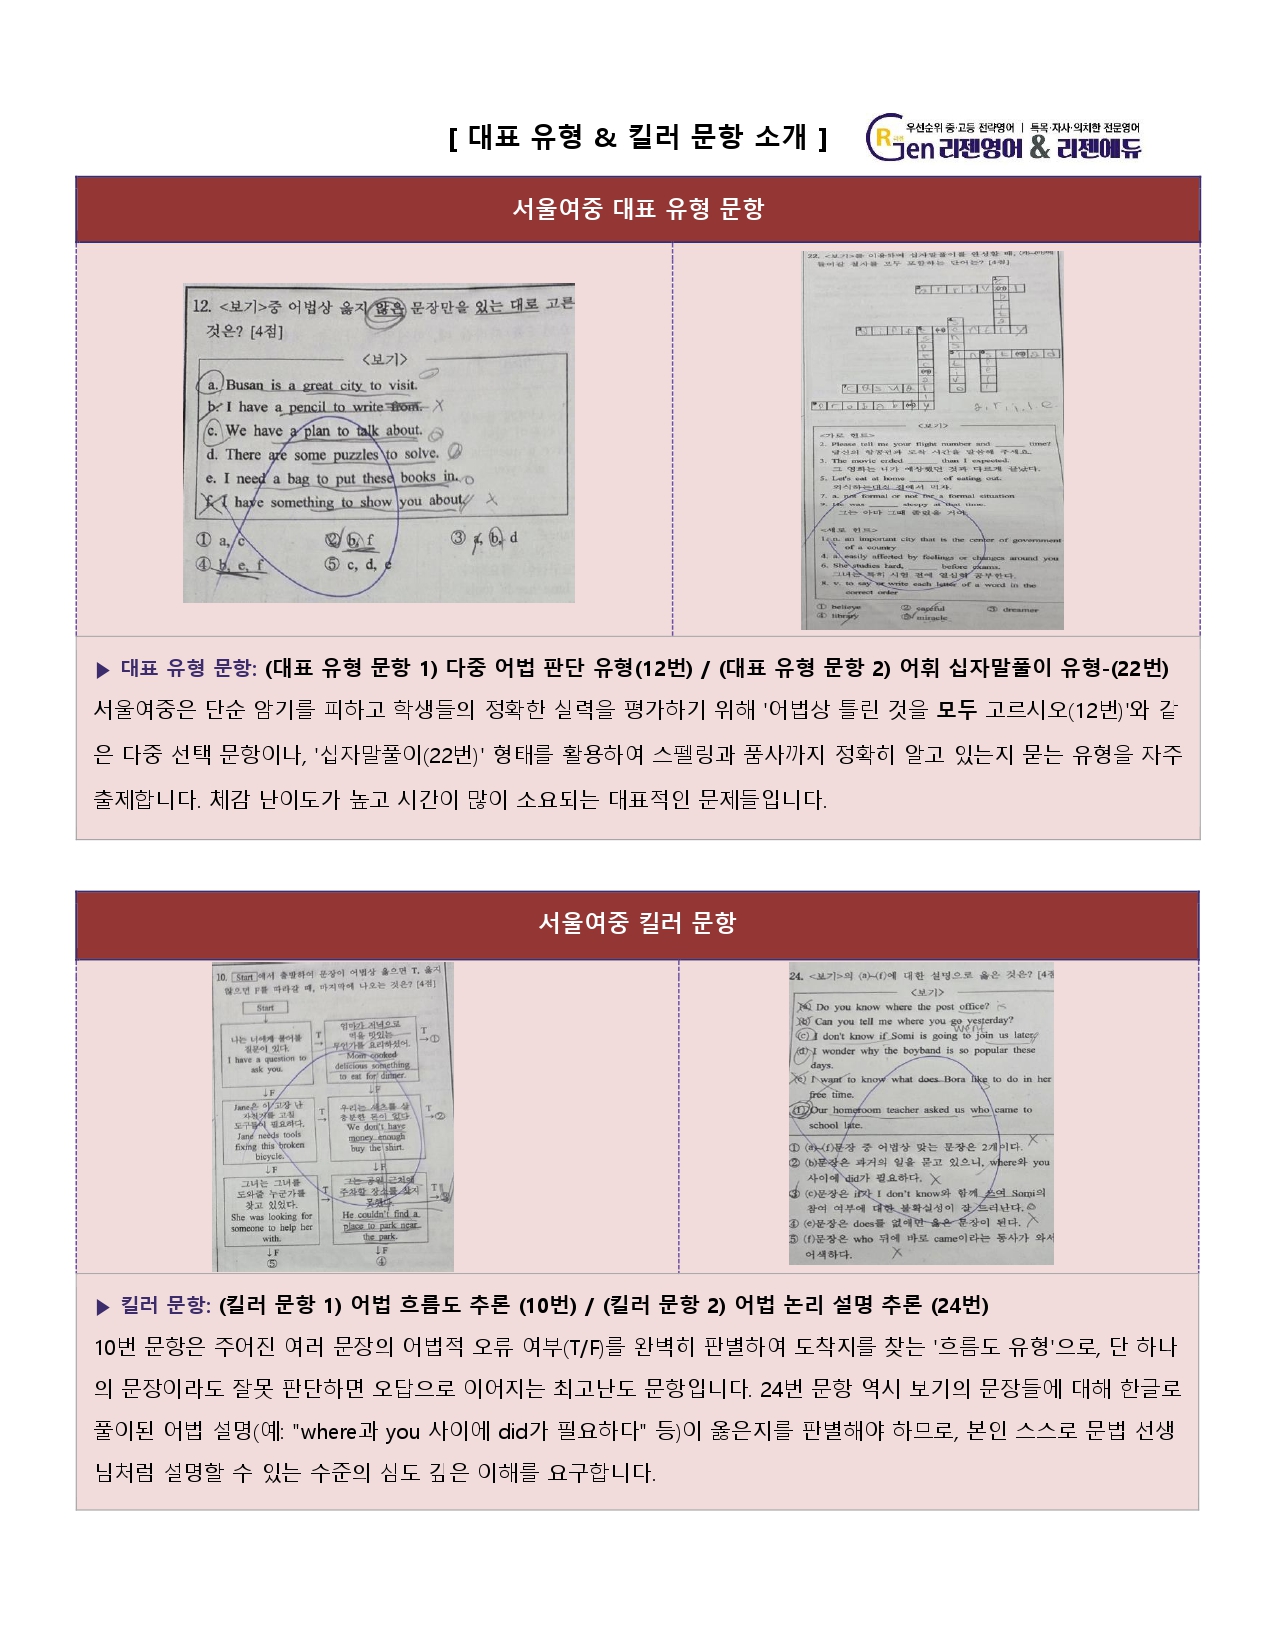 [ 대표 유형 & 킬러 문항 소개 ]
우선순위 중·고등 전략영어 | 특목·자사·의치한 전문영어
Gen 리젠영어 & 리젠에듀
서울여중 대표 유형 문항
12. <보기>중 어법상 옳지 않은 문장만을 있는 대로 고른
것은? [4점]
<보기>
a. Busan is a great city to visit.
b. I have a pencil to write from.
c. We have a plan to talk about.
d. There are some puzzles to solve.
e. I need a bag to put these books in.
f. I have something to show you about.
① a, c ② b, f ③ a, b, d
④ b, e, f ⑤ c, d, e
22. <보기>를 이용하여 십자말풀이를 완성할 때,
들어갈 철자를 모두 포함하는 단어는? [4점]
<보기>
<가로 힌트>
2. Please tell me your flight number and ______ time?
당신의 항공편과 도착 시간을 말씀해 주세요.
3. The movie ended ______ than I expected.
그 영화는 내가 예상했던 것과 다르게 끝났다.
5. Let's eat at home ______ of eating out.
외식하는대신 집에서 먹자.
7. a. not formal or not for a formal situation
9. He was ______ sleepy at that time.
그는 아마 그때 졸렸을 거야.
<세로 힌트>
1. n. an important city that is the center of government
of a country
4. a. easily affected by feelings or changes around you
6. She studies hard, ______ before exams.
그녀는 특히 시험 전에 열심히 공부한다.
8. v. to say or write each letter of a word in the
correct order
① believe ② careful ③ dreamer
④ library ⑤ miracle
▶ 대표 유형 문항: (대표 유형 문항 1) 다중 어법 판단 유형(12번) / (대표 유형 문항 2) 어휘 십자말풀이 유형-(22번)
서울여중은 단순 암기를 피하고 학생들의 정확한 실력을 평가하기 위해 '어법상 틀린 것을 모두 고르시오(12번)'와 같
은 다중 선택 문항이나, '십자말풀이(22번)' 형태를 활용하여 스펠링과 품사까지 정확히 알고 있는지 묻는 유형을 자주
출제합니다. 체감 난이도가 높고 시간이 많이 소요되는 대표적인 문제들입니다.
서울여중 킬러 문항
10. Start 에서 출발하여 문장이 어법상 옳으면 T, 옳지
않으면 F를 따라갈 때, 마지막에 나오는 것은? [4점]
Start
나는 너에게 물어볼
질문이 있다.
I have a question to
ask you.
T
→
엄마가 저녁으로
먹을 맛있는
무언가를 요리하셨어.
Mom cooked
delicious something
to eat for dinner.
T
→①
↓F
↓F
Jane은 이 고장 난
자전거를 고칠
도구들이 필요하다.
Jane needs tools
fixing this broken
bicycle.
T
→
우리는 셔츠를 살
충분한 돈이 없다.
We don't have
money enough
buy the shirt.
T
→②
↓F
↓F
그녀는 그녀를
도와줄 누군가를
찾고 있었다.
She was looking for
someone to help her
with.
T
→
그는 공원 근처에
주차할 장소를 찾지
못했다.
He couldn't find a
place to park near
the park.
T
→③
↓F
⑤
↓F
④
24. <보기>의 (a)~(f)에 대한 설명으로 옳은 것은? [4점
<보기>
(a) Do you know where the post office?
(b) Can you tell me where you go yesterday?
went
(c) I don't know if Somi is going to join us later.
(d) I wonder why the boyband is so popular these
days.
(e) I want to know what does Bora like to do in her
free time.
(f) Our homeroom teacher asked us who came to
school late.
① (a)~(f)문장 중 어법상 맞는 문장은 2개이다.
② (b)문장은 과거의 일을 묻고 있으니, where와 you
사이에 did가 필요하다.
③ (c)문장은 if가 I don't know와 함께 쓰여 Somi의
참여 여부에 대한 불확실성이 잘 드러난다.
④ (e)문장은 does를 없애면 옳은 문장이 된다.
⑤ (f)문장은 who 뒤에 바로 came이라는 동사가 와서
어색하다.
▶ 킬러 문항: (킬러 문항 1) 어법 흐름도 추론 (10번) / (킬러 문항 2) 어법 논리 설명 추론 (24번)
10번 문항은 주어진 여러 문장의 어법적 오류 여부(T/F)를 완벽히 판별하여 도착지를 찾는 '흐름도 유형'으로, 단 하나
의 문장이라도 잘못 판단하면 오답으로 이어지는 최고난도 문항입니다. 24번 문항 역시 보기의 문장들에 대해 한글로
풀이된 어법 설명(예: "where과 you 사이에 did가 필요하다" 등)이 옳은지를 판별해야 하므로, 본인 스스로 문법 선생
님처럼 설명할 수 있는 수준의 심도 깊은 이해를 요구합니다.